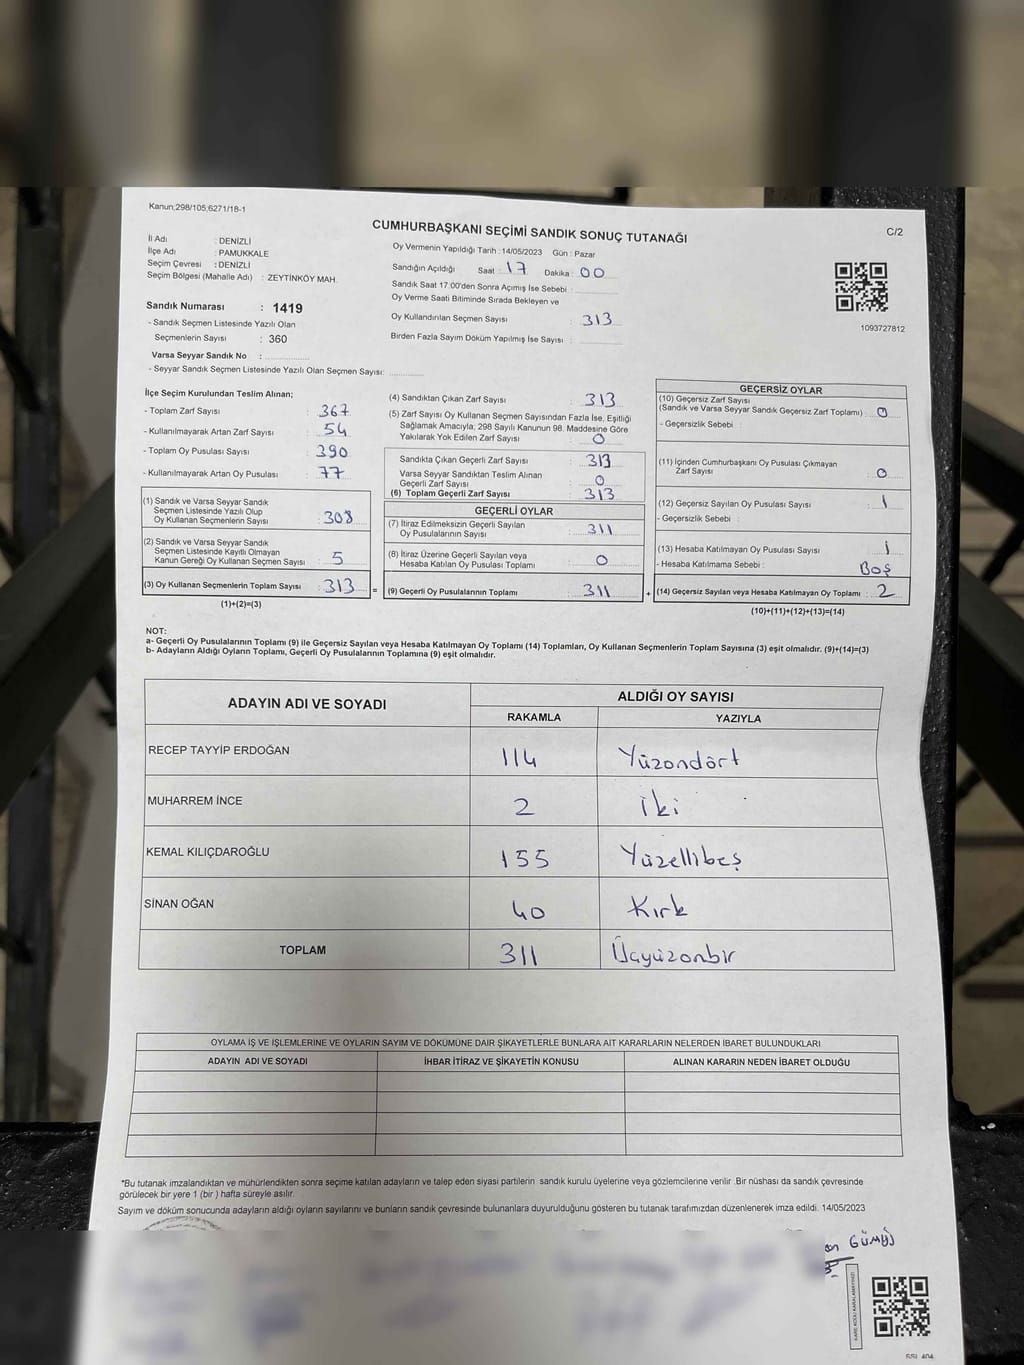 Kanun;298/105;6271/18-1
CUMHURBAŞKANI SEÇİMİ SANDIK SONUÇ TUTANAĞI
C/2
İl Adı : DENİZLİ
İlçe Adı : PAMUKKALE
Seçim Çevresi : DENİZLİ
Seçim Bölgesi (Mahalle Adı) : ZEYTİNKÖY MAH.
Sandık Numarası : 1419
- Sandık Seçmen Listesinde Yazılı Olan
Seçmenlerin Sayısı : 360
Varsa Seyyar Sandık No :
- Seyyar Sandık Seçmen Listesinde Yazılı Olan Seçmen Sayısı:
Oy Vermenin Yapıldığı Tarih : 14/05/2023 Gün : Pazar
Sandığın Açıldığı Saat : 17 Dakika : 00
Sandık Saat 17:00'den Sonra Açımış İse Sebebi :
Oy Verme Saati Bitiminde Sırada Bekleyen ve
Oy Kullandırılan Seçmen Sayısı : 313
Birden Fazla Sayım Döküm Yapılmış İse Sayısı :
1093727812
İlçe Seçim Kurulundan Teslim Alınan;
- Toplam Zarf Sayısı : 367
- Kullanılmayarak Artan Zarf Sayısı : 54
- Toplam Oy Pusulası Sayısı : 390
- Kullanılmayarak Artan Oy Pusulası : 77
(1) Sandık ve Varsa Seyyar Sandık
Seçmen Listesinde Yazılı Olup
Oy Kullanan Seçmenlerin Sayısı : 308
(2) Sandık ve Varsa Seyyar Sandık
Seçmen Listesinde Kayıtlı Olmayan
Kanun Gereği Oy Kullanan Seçmen Sayısı : 5
(3) Oy Kullanan Seçmenlerin Toplam Sayısı : 313 =
(1)+(2)=(3)
(4) Sandıktan Çıkan Zarf Sayısı : 313
(5) Zarf Sayısı Oy Kullanan Seçmen Sayısından Fazla İse, Eşitliği
Sağlamak Amacıyla; 298 Sayılı Kanunun 98. Maddesine Göre
Yakılarak Yok Edilen Zarf Sayısı : 0
Sandıkta Çıkan Geçerli Zarf Sayısı : 313
Varsa Seyyar Sandıktan Teslim Alınan
Geçerli Zarf Sayısı : 0
(6) Toplam Geçerli Zarf Sayısı : 313
GEÇERLİ OYLAR
(7) İtiraz Edilmeksizin Geçerli Sayılan
Oy Pusulalarının Sayısı : 311
(8) İtiraz Üzerine Geçerli Sayılan veya
Hesaba Katılan Oy Pusulası Toplamı : 0
(9) Geçerli Oy Pusulalarının Toplamı : 311 +
GEÇERSİZ OYLAR
(10) Geçersiz Zarf Sayısı
(Sandık ve Varsa Seyyar Sandık Geçersiz Zarf Toplamı) : 0
- Geçersizlik Sebebi :
(11) İçinden Cumhurbaşkanı Oy Pusulası Çıkmayan
Zarf Sayısı : 0
(12) Geçersiz Sayılan Oy Pusulası Sayısı : 1
- Geçersizlik Sebebi :
(13) Hesaba Katılmayan Oy Pusulası Sayısı : 1
- Hesaba Katılmama Sebebi : Boş
(14) Geçersiz Sayılan veya Hesaba Katılmayan Oy Toplamı : 2
(10)+(11)+(12)+(13)=(14)
NOT:
a- Geçerli Oy Pusulalarının Toplamı (9) ile Geçersiz Sayılan veya Hesaba Katılmayan Oy Toplamı (14) Toplamları, Oy Kullanan Seçmenlerin Toplam Sayısına (3) eşit olmalıdır. (9)+(14)=(3)
b- Adayların Aldığı Oyların Toplamı, Geçerli Oy Pusulalarının Toplamına (9) eşit olmalıdır.
ADAYIN ADI VE SOYADI ALDIĞI OY SAYISI
RAKAMLA YAZIYLA
RECEP TAYYİP ERDOĞAN 114 Yüzondört
MUHARREM İNCE 2 İki
KEMAL KILIÇDAROĞLU 155 Yüzellibeş
SİNAN OĞAN 40 Kırk
TOPLAM 311 Üçyüzonbir
OYLAMA İŞ VE İŞLEMLERİNE VE OYLARIN SAYIM VE DÖKÜMÜNE DAİR ŞİKAYETLERLE BUNLARA AİT KARARLARIN NELERDEN İBARET BULUNDUKLARI
ADAYIN ADI VE SOYADI İHBAR İTİRAZ VE ŞİKAYETİN KONUSU ALINAN KARARIN NEDEN İBARET OLDUĞU
*Bu tutanak imzalandıktan ve mühürlendikten sonra seçime katılan adayların ve talep eden siyasi partilerin sandık kurulu üyelerine veya gözlemcilerine verilir .Bir nüshası da sandık çevresinde
görülecek bir yere 1 (bir ) hafta süreyle asılır.
Sayım ve döküm sonucunda adayların aldığı oyların sayılarını ve bunların sandık çevresinde bulunanlara duyurulduğunu gösteren bu tutanak tarafımızdan düzenlenerek imza edildi. 14/05/2023
GÜMÜŞ
KARE KODU KARALAMAYINIZ!